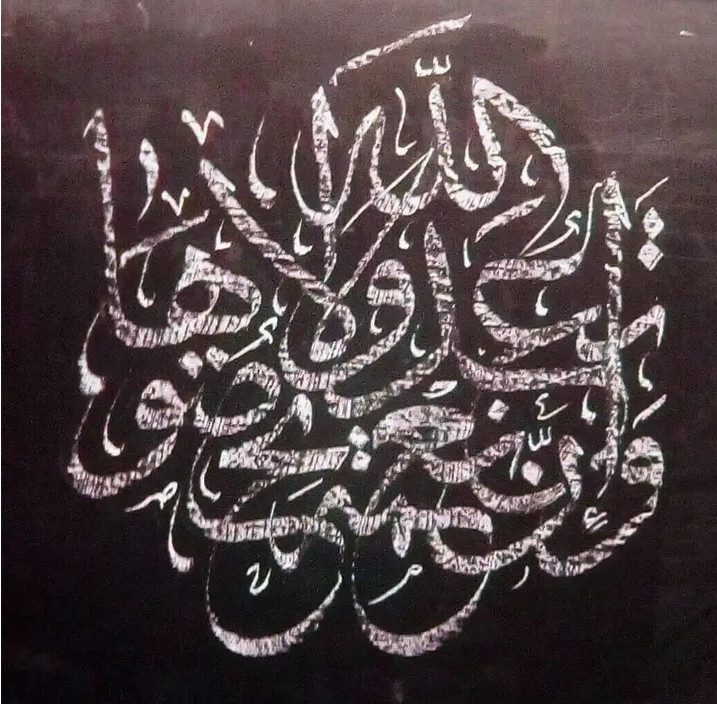 وَإِن تَعُدُّوا نِعْمَةَ اللَّهِ لَا تُحْصُوهَا